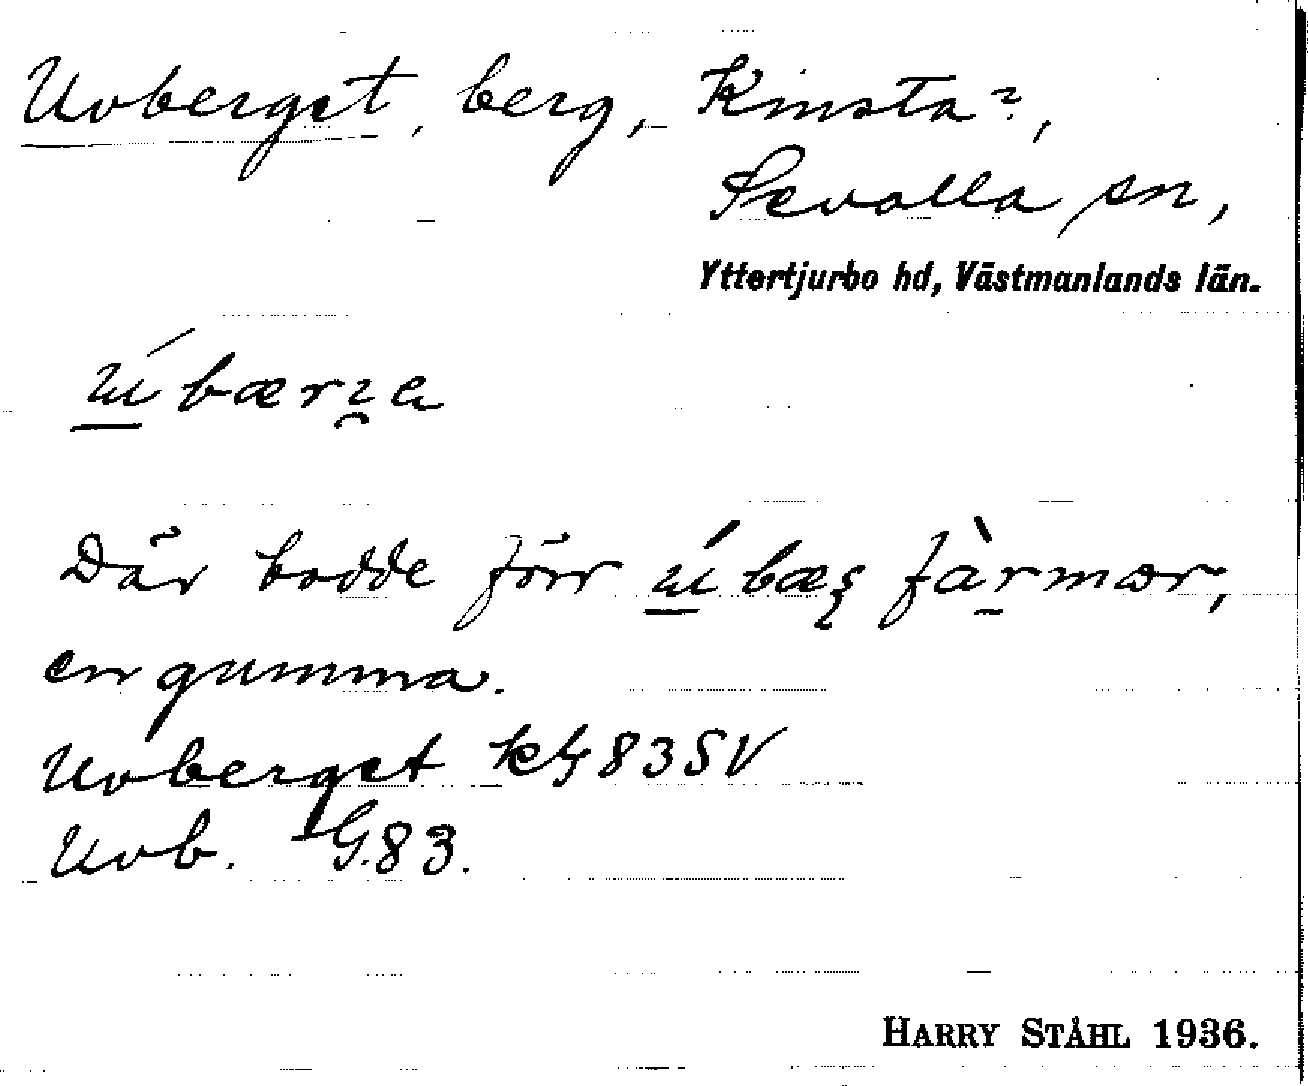 Uvberget, berg, Kinsta?,
Sevalla sn,
Yttertjurbo hd, Västmanlands län.
ú bærɜe
Där bodde förr ú bæʂ fàrmor,
en gumma.
Uvberget kG83SV
Uvb. G.83.
HARRY STÅHL 1936.